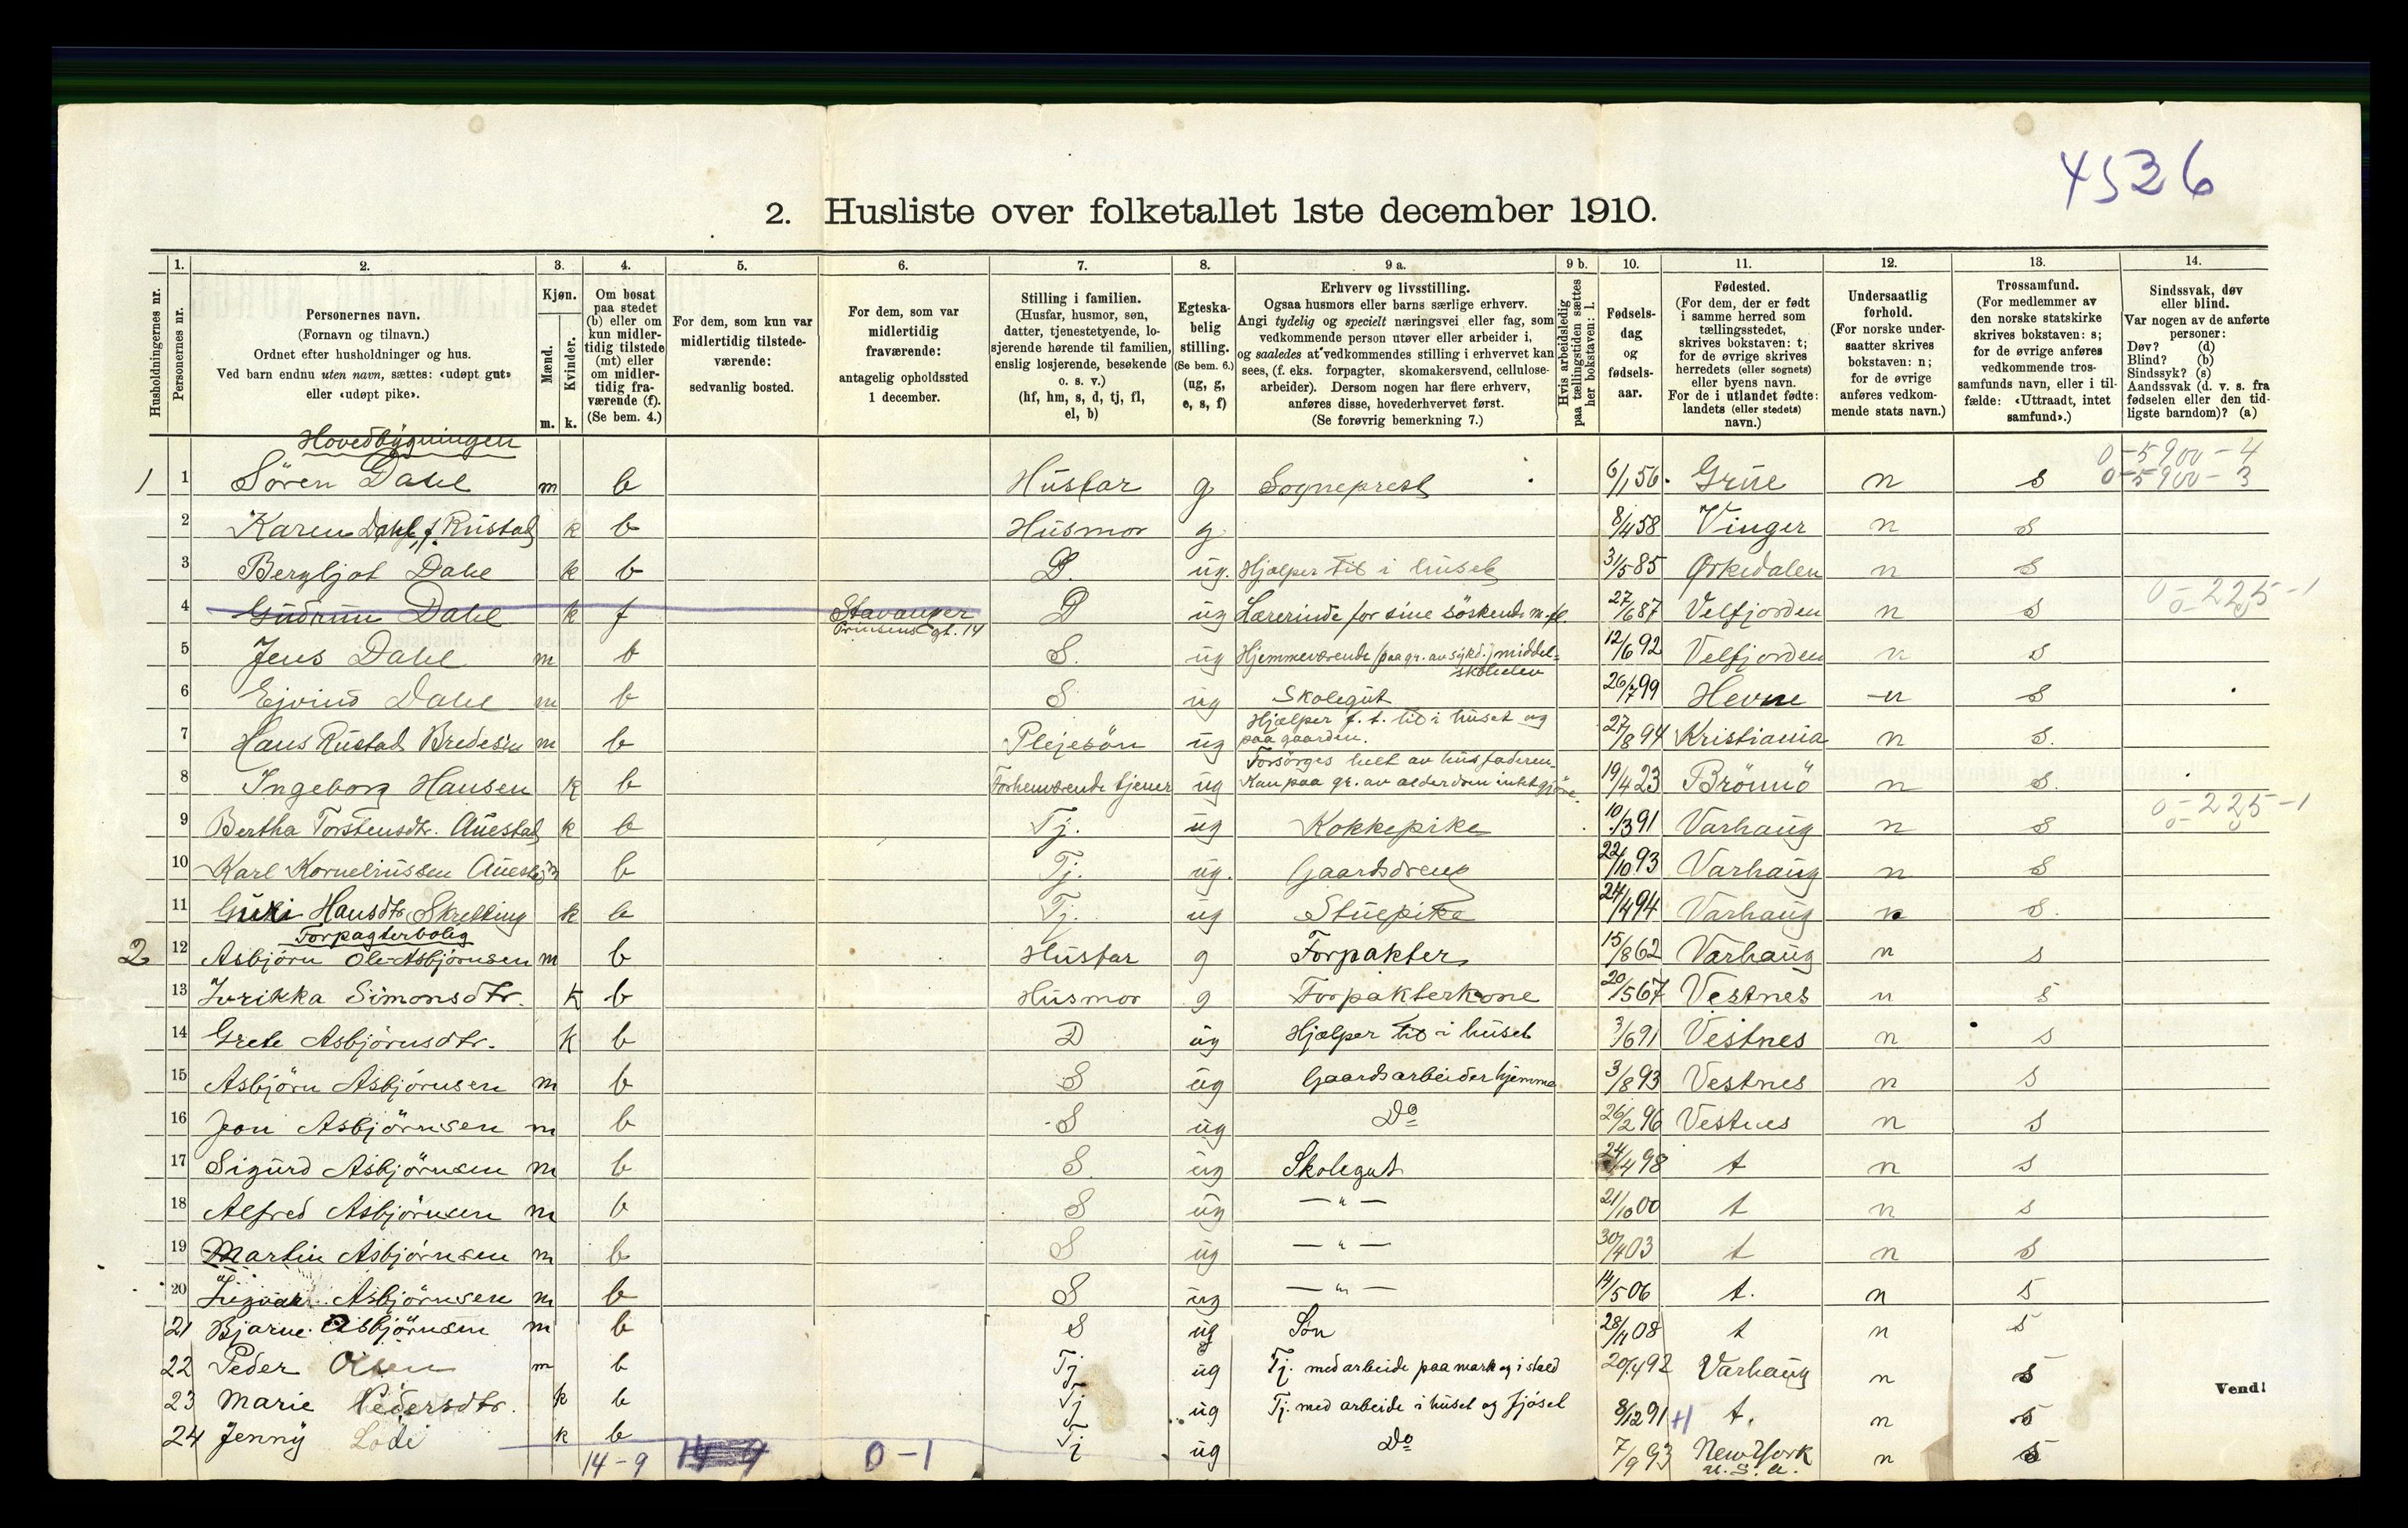 4536
2. Husliste over folketallet 1ste december 1910.
Husholdningernes nr.
1. Personernes nr.
2. Personernes navn. (Fornavn og tilnavn.) Ordnet efter husholdninger og hus. Ved barn endnu uten navn, sættes: «udøpt gut» eller «udøpt pike».
3. Kjøn. Mænd. Kvinder. m. k.
4. Om bosat paa stedet (b) eller om kun midlertidig tilstede (mt) eller om midlertidig fraværende (f). (Se bem. 4.)
5. For dem, som kun var midlertidig tilstedeværende: sedvanlig bosted.
6. For dem, som var midlertidig fraværende: antagelig opholdssted 1 december.
7. Stilling i familien. (Husfar, husmor, søn, datter, tjenestetyende, losjerende hørende til familien, enslig losjerende, besøkende o. s. v.) (hf, hm, s, d, tj, fl, el, b)
8. Egteskabelig stilling. (Se bem. 6.) (ug, g, e, s, f)
9 a. Erhverv og livsstilling. Ogsaa husmors eller barns særlige erhverv. Angi tydelig og specielt næringsvei eller fag, som vedkommende person utøver eller arbeider i, og saaledes at vedkommendes stilling i erhvervet kan sees, (f. eks. forpagter, skomakersvend, cellulosearbeider). Dersom nogen har flere erhverv, anføres disse, hovederhvervet først. (Se forøvrig bemerkning 7.)
9 b. Hvis arbeidsledig paa tællingstiden sættes her bokstaven: l.
10. Fødselsdag og fødselsaar.
11. Fødested. (For dem, der er født i samme herred som tællingsstedet, skrives bokstaven: t; for de øvrige skrives herredets (eller sognets) eller byens navn. For de i utlandet fødte: landets (eller stedets) navn.)
12. Undersaatlig forhold. (For norske undersaatter skrives bokstaven: n; for de øvrige anføres vedkommende stats navn.)
13. Trossamfund. (For medlemmer av den norske statskirke skrives bokstaven: s; for de øvrige anføres vedkommende trossamfunds navn, eller i tilfælde: «Uttraadt, intet samfund».)
14. Sindssvak, døv eller blind. Var nogen av de anførte personer: Døv? (d) Blind? (b) Sindssyk? (s) Aandssvak (d. v. s. fra fødselen eller den tidligste barndom)? (a)
Hovedbygningen
0-5900-4
1 1 Sören Dahl m b Husfar g Sogneprest 6/1 56 Grue n s 0-5900-3
2 Karen Dahl, f. Rustad k b Husmor g 8/4 58 Vinger n s
3 Bergljot Dahl k b D. ug. Hjælper til i huset 31/5 85 Ørkedalen n s
4 Gudrun Dahl k f Stavanger Prinsens gt. 14 D ug Lærerinde for sine söskende m. fl. 27/6 87 Velfjorden n s 0-225-1
5 Jens Dahl m b S. ug Hjemmeværende (paa gr. av sykd.) middelskoleelev 12/6 92 Velfjorden n s
6 Ejvind Dahl m b S ug Skolegut 26/7 99 Hevne n s
7 Hans Rustad Bredesen m b Plejesön ug Hjælper f. t. til i huset og paa gaarden. 27/8 94 Kristiania n s.
8 Ingeborg Hansen k b Forhenværende tjener ug Forsörges helt av husfaderen. Kan paa gr. av alderdom intet gjöre. 19/4 23 Brönnö n s.
9 Bertha Torstensdtr. Auestad k b Tj. ug Kokkepike 10/3 91 Varhaug n s 0-225-1
10 Karl Kornelius­sen Auestad m b Tj. ug. Gaardsdreng 22/10 93 Varhaug n s
11 Guri Hansdtr. Skretting k b Tj. ug Stuepike 24/4 94 Varhaug n s.
Forpagterbolig
2 12 Asbjörn Ole Asbjörnsen m b Husfar g Forpakter 15/8 62 Varhaug n s
13 Jurikka Simonsdtr. k b Husmor g Forpakterkone 20/5 67 Vestnes n s
14 Grete Asbjörnsdtr. k b D ug Hjælper til i huset 3/6 91 Vestnes n s
15 Asbjörn Asbjörnsen m b S ug Gaardsarbeider hjemme 3/8 93 Vestnes n s
16 Jon Asbjörnsen m b S ug Do 26/2 96 Vestnes n s
17 Sigurd Asbjörnsen m b S ug Skolegut 24/4 98 t n s
18 Alfred Asbjörnsen m b S ug — " — 21/10 00 t n s
19 Martin Asbjörnsen m b S ug — " — 30/4 03 t n s
20 Ingvar Asbjörnsen m b S ug — " — 14/5 06 t. n s
21 Bjarne Asbjörnsen m b S ug Søn 28/11 08 t n s
22 Peder Olsen m b Tj ug Tj. med arbeide paa mark og i stald 20/4 92 Varhaug n s
23 Marie Pedersdtr. k b Tj ug Tj. med arbeide i huset og fjøset 8/12 91 t. n s
24 Jenny k b Tj ug Do 7/9 93 New York U. S. A. n s
14-9 14 9 0-1
Vend!